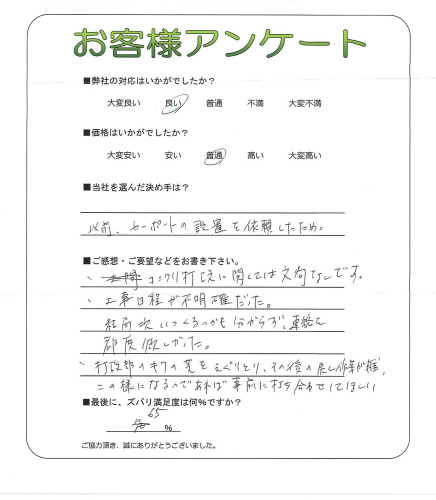 お客様アンケート
■弊社の対応はいかがでしたか?
大変良い 良い 普通 不満 大変不満
■価格はいかがでしたか?
大変安い 安い 普通 高い 大変高い
■当社を選んだ決め手は?
以前、カーポートの設置を依頼したため。
■ご感想・ご要望などをお書き下さい。
・コンクリ打設に関しては文句なしです。
・工事日程が不明確だった。
結局次いつくるのかも分からず、連絡を
都度欲しかった。
・打設部のキワの芝をえぐりとり、その後の戻し作業が雑、
この様になるのであれば事前に打ち合わせしてほしい
■最後に、ズバリ満足度は何%ですか?
65
%
ご協力頂き、誠にありがとうございました。